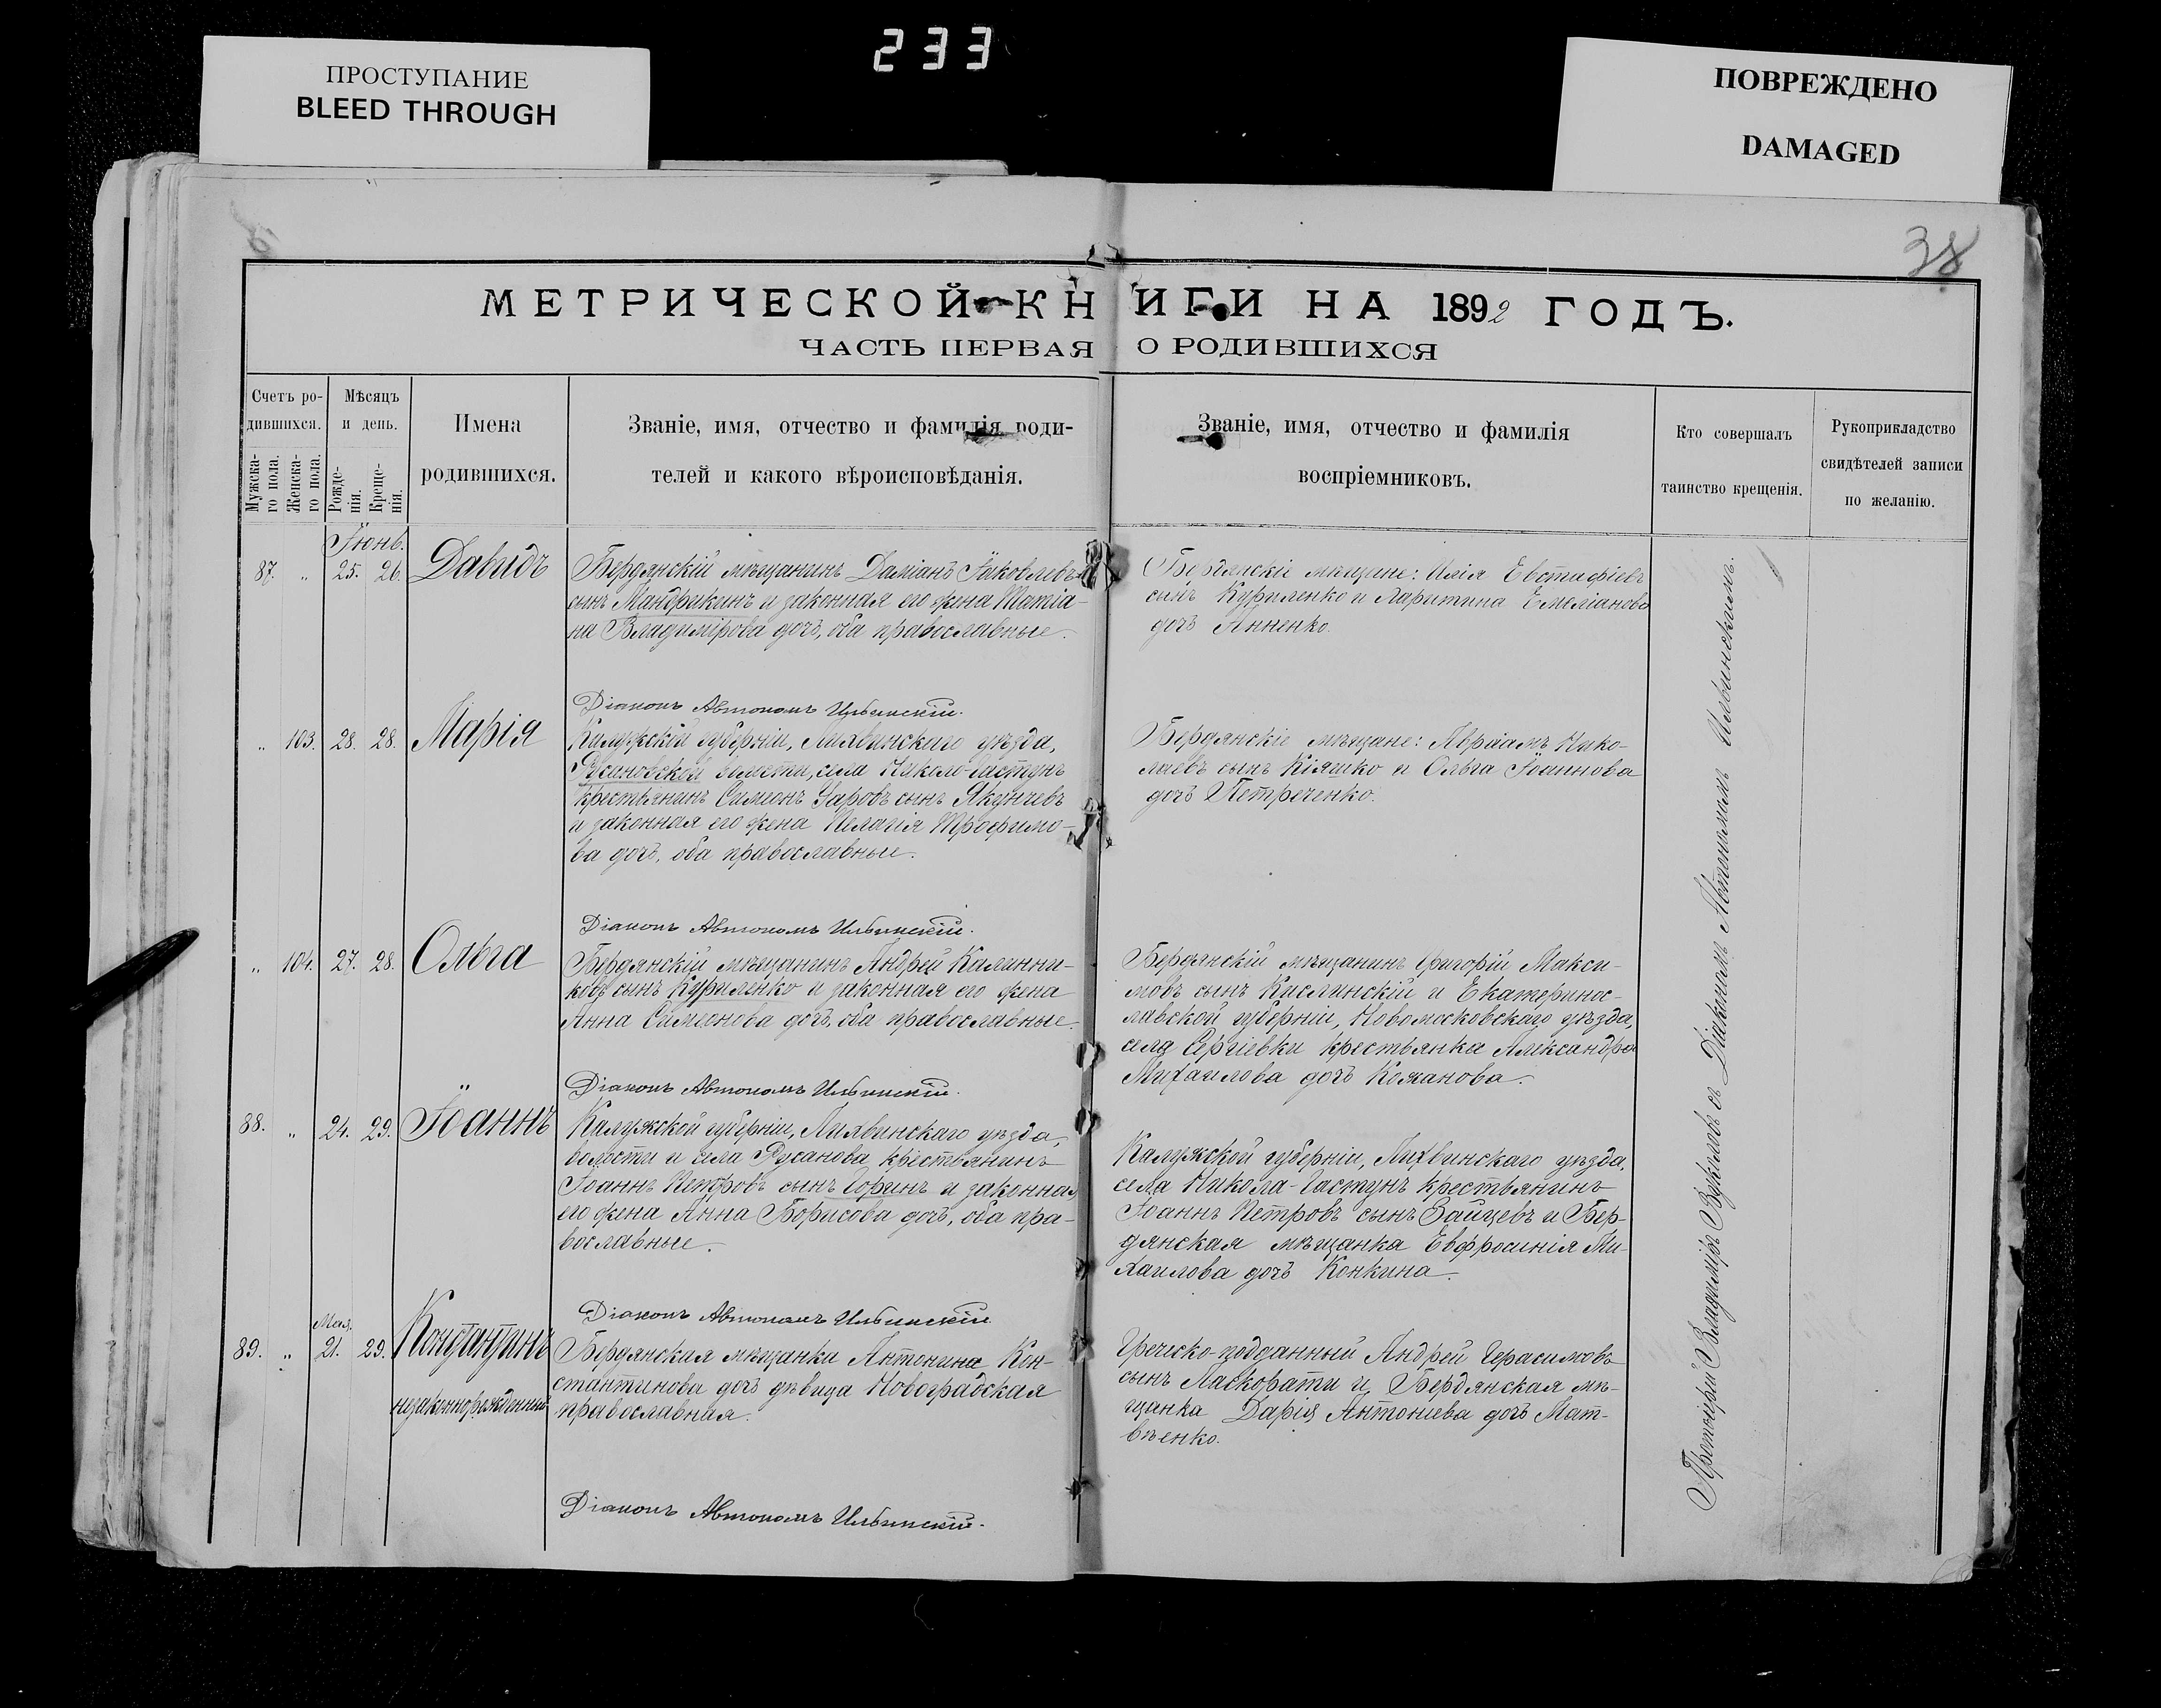 233
ПРОСТУПАНИЕ
BLEED THROUGH
ПОВРЕЖДЕНО
DAMAGED
38
МЕТРИЧЕСКОЙ КНИГИ НА 1892 ГОДЪ.
ЧАСТЬ ПЕРВАЯ О РОДИВШИХСЯ
Счетъ ро-
дившихся.
Мужска-
го пола.
Женска-
го пола.
Мѣсяцъ
и день.
Рожде-
нія.
Креще-
нія.
Имена
родившихся.
Званіе, имя, отчество и фамилія роди-
телей и какого вѣроисповѣданія.
Званіе, имя, отчество и фамилія
воспріемниковъ.
Кто совершалъ
таинство крещенія.
Рукоприкладство
свидѣтелей записи
по желанію.
Іюнь.
87. " 25. 26. Давидъ
Бердянскій мѣщанинъ Даміанъ Іаковлевъ
сынъ Мандрикинъ и законная его жена Татіа-
на Владимірова дочь, оба православные.
Бердянскіе мѣщане: Илія Евстафіевъ
сынъ Куриленко и Харитина Емеліанова
дочь Янненко.
Діаконъ Автономъ Ильинскій.
" 103. 28. 28. Марія
Калужскій губерніи, Лихвинскаго уѣзда,
Русановской волости, села Николо-Гастунь
крестьянинъ Симеонъ сынъ Якунчевъ
и законная его жена Пелагія Трофимо-
ва дочь, оба православные.
Бердянскіе мѣщане: Авраамъ Нико-
лаевъ сынъ Кіяшко и Ольга Іоаннова
дочь Петреченко.
Діаконъ Автономъ Ильинскій.
" 104. 27. 28. Ольга
Бердянскій мѣщанинъ Андрей Калинни-
ковъ сынъ Куриленко и законная его жена
Анна Симеонова дочь, оба православные.
Бердянскій мѣщанинъ Григорій Макси-
мовъ сынъ Кислинскій и Екатеринос-
лавской губерніи, Новомосковскаго уѣзда,
села Сергіевки крестьянка Александра
Михаилова дочь Кожанова.
Діаконъ Автономъ Ильинскій.
88. " 24. 29. Іоаннъ
Калужской губерніи, Лихвинскаго уѣзда,
волости и села Русанова крестьянинъ
Іоаннъ Петровъ сынъ Горинъ и законная
его жена Анна Борисова дочь, оба пра-
вославные.
Калужской губерніи, Лихвинскаго уѣзда,
села Никола-Гастунь крестьянинъ
Іоаннъ Петровъ сынъ Зайцевъ и Бер-
дянская мѣщанка Евфросинія Ми-
хаилова дочь Конкина.
Діаконъ Автономъ Ильинскій
Мая.
89. " 21. 29. Константинъ
незаконнорожденный
Бердянская мѣщанка Антонина Кон-
стантинова дочь дѣвица Новоградская
православная.
Греческо-подданный Андрей Герасимовъ
сынъ Ласкорати и Бердянская мѣ-
щанка Дарія Антоніева дочь Мат-
вѣенко.
Діаконъ Автономъ Ильинскій.
Протоіерей Владиміръ Вуколовъ съ Діакономъ Автономомъ Ильинскимъ.